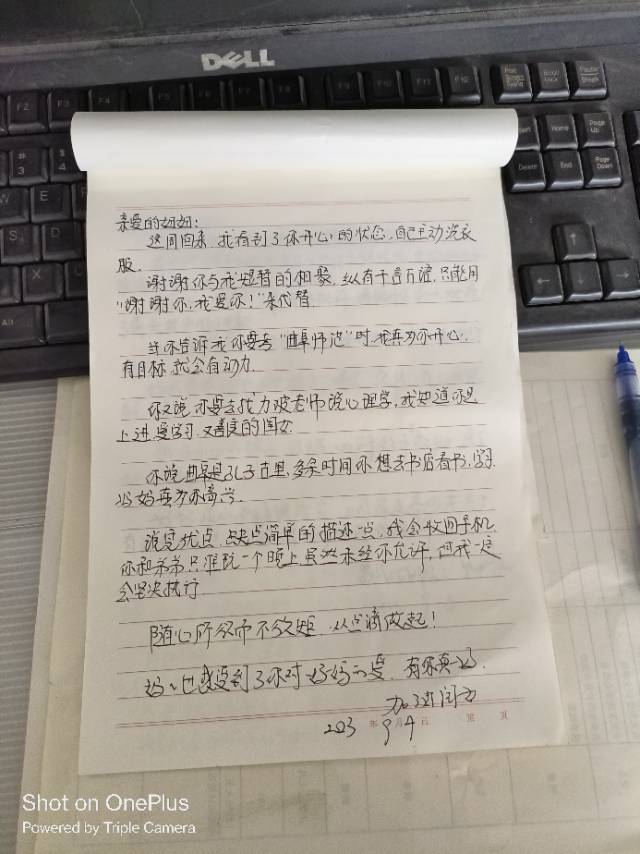 DELL
亲爱的妞妞:
这周回来,我看到了你开心的状态,自己主动洗衣
服.
谢谢你与我短暂的相聚,纵有千言万语,只能用
"谢谢你,我爱你!"来代替
当你告诉我你要去"曲阜师范"时,我真为你开心,
有目标就会有动力.
你又说 你要去找力波老师说心理学,我知道你是
上进爱学习 又善良的闺女
你说曲阜是孔子古里,多余时间你想去书店看书,学习
妈妈真为你高兴.
说完优点,缺点简单的描述一点,我会收回手机
你和弟弟只准玩一个晚上虽然未经你允许,但我一定
会坚决执行
随心所欲而不欲矩,从点滴做起!
妈妈也感受到了你对妈妈的爱,有你真好.
加油闺女
2023 年 9 月 4 日 第 页
Shot on OnePlus
Powered by Triple Camera